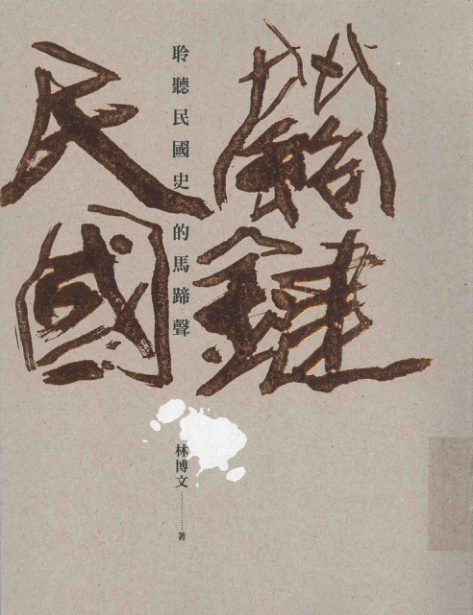 關鍵
民國
聆聽民國史的馬蹄聲
林博文⋯⋯⋯著